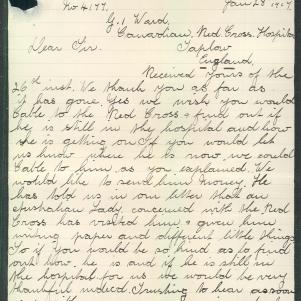 No 4177. Jan 28 1917
G. I Ward.
Canadian, Red Cross, Hospital
Dear Sir. Taplow
England.
Received yours of the
26th inst. We thank you as far as
it has gone. Yes we wish you would
Cable to the Red Cross & find out if
he is still in the hospital and how
she is getting on. If you would let
us know where he is now we could
Cable to him as you explained. We
would like to send him money. He
has told us in our letter that an
Australian Lady concerned with the Red
Cross has visited him & given him
writing paper and different little things
So if you would be so kind as to find
out how he is and if he is still in
the hospital for us we would be very
thankful indeed. Trusting to hear as soon